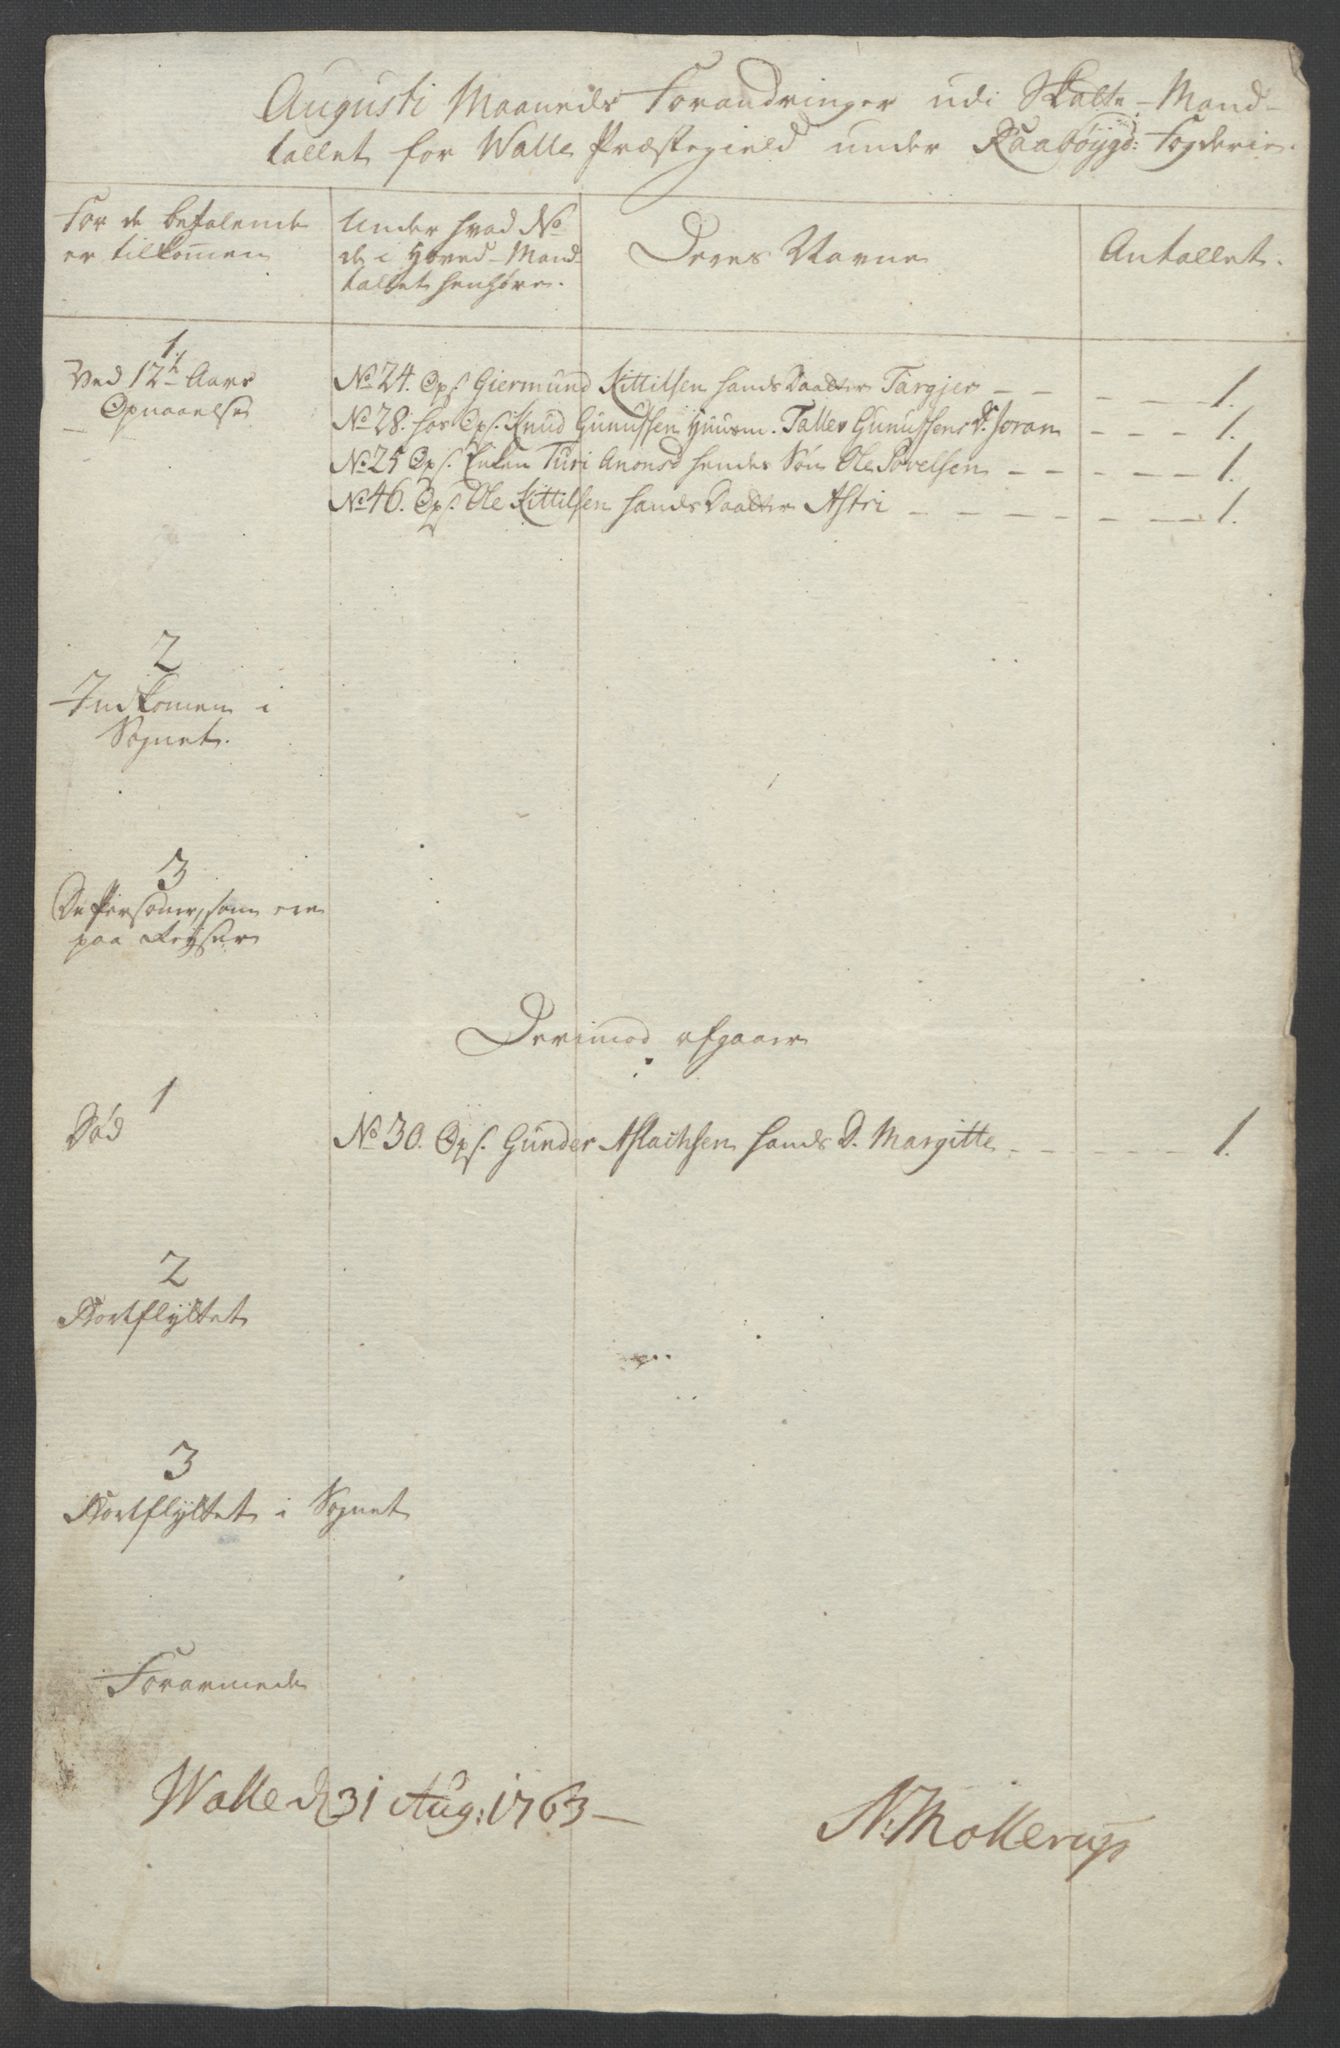 Augusti Maaneds Forandringer udi Skatte-Mand-
tallet for Walle Præstegield under Raabøygd: Fogderie.
For de betalende
er tilkommen
Under hvad No
de i Hoved-Mand
tallet henhøre.
Deres Navne
Antallet.
1.
Ved 12te Aars
Opnaaelse
No 24. Ops. Giermund Kittilsen hands Daatter Targjer - - - - - 1.
No 28. hos Ops. Knud Gunussen Huusm. Tallev Gunussens D. Joran - - - 1.
No 25 Ops. Enken Turi Anonsd hendes Søn Ole Povelsen - - - - - 1.
No 46. Ops. Ole Kittilsen hands Daatter Astri - - - - - - - 1.
2
Indkommen i
Sognet.
3
De Personer, som ere
paa Reyser
Derimod afgaaer
1
Død
No 30. Ops. Gunder Aslachsen hands D. Margitte - - - - - 1.
2
Bortflyttet
3
Bortflyttet i Sognet
Forarmede
Walle d 31 Aug: 1763 —
N: Mollerup